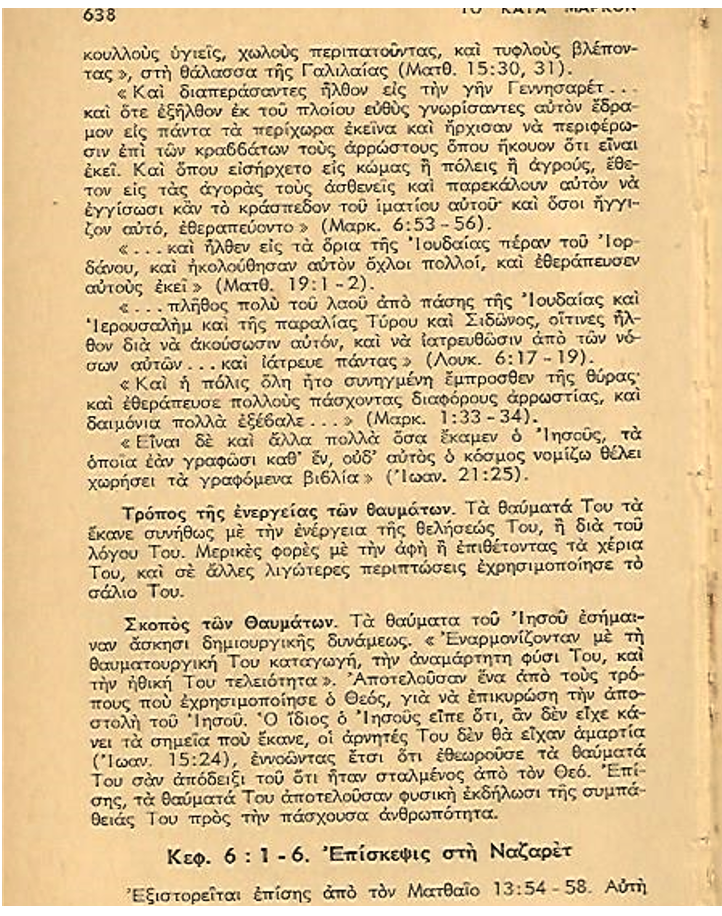 638
ΤΟ ΚΑΤΑ ΜΑΡΚΟΝ
κουλλοὺς ὑγιεῖς, χωλοὺς περιπατοῦντας, καὶ τυφλοὺς βλέπον-
τας », στὴ θάλασσα τῆς Γαλιλαίας (Ματθ. 15:30, 31).
« Καὶ διαπεράσαντες ἦλθον εἰς τὴν γῆν Γεννησαρέτ...
καὶ ὅτε ἐξῆλθον ἐκ τοῦ πλοίου εὐθὺς γνωρίσαντες αὐτὸν ἔδρα-
μον εἰς πάντα τὰ περίχωρα ἐκεῖνα καὶ ἤρχισαν νὰ περιφέρω-
σιν ἐπὶ τῶν κραββάτων τοὺς ἀρρώστους ὅπου ἤκουον ὅτι εἶναι
ἐκεῖ. Καὶ ὅπου εἰσήρχετο εἰς κώμας ἢ πόλεις ἢ ἀγρούς, ἔθε-
τον εἰς τὰς ἀγορὰς τοὺς ἀσθενεῖς καὶ παρεκάλουν αὐτὸν νὰ
ἐγγίσωσι κἂν τὸ κράσπεδον τοῦ ἱματίου αὐτοῦ· καὶ ὅσοι ἤγγι-
ζον αὐτό, ἐθεραπεύοντο » (Μαρκ. 6:53 - 56).
« ... καὶ ἦλθεν εἰς τὰ ὅρια τῆς Ἰουδαίας πέραν τοῦ Ἰορ-
δάνου, καὶ ἠκολούθησαν αὐτὸν ὄχλοι πολλοί, καὶ ἐθεράπευσεν
αὐτοὺς ἐκεῖ » (Ματθ. 19:1 - 2).
« ... πλῆθος πολὺ τοῦ λαοῦ ἀπὸ πάσης τῆς Ἰουδαίας καὶ
Ἱερουσαλὴμ καὶ τῆς παραλίας Τύρου καὶ Σιδῶνος, οἵτινες ἦλ-
θον διὰ νὰ ἀκούσωσιν αὐτόν, καὶ νὰ ἰατρευθῶσιν ἀπὸ τῶν νό-
σων αὐτῶν ... καὶ ἰάτρευε πάντας » (Λουκ. 6:17 - 19).
« Καὶ ἡ πόλις ὅλη ἦτο συνηγμένη ἔμπροσθεν τῆς θύρας·
καὶ ἐθεράπευσε πολλοὺς πάσχοντας διαφόρους ἀρρωστίας, καὶ
δαιμόνια πολλὰ ἐξέβαλε ... » (Μαρκ. 1:33 - 34).
« Εἶναι δὲ καὶ ἄλλα πολλὰ ὅσα ἔκαμεν ὁ Ἰησοῦς, τὰ
ὁποῖα ἐὰν γραφῶσι καθ' ἕν, οὐδ' αὐτὸς ὁ κόσμος νομίζω θέλει
χωρήσει τὰ γραφόμενα βιβλία » (Ἰωαν. 21:25).
Τρόπος τῆς ἐνεργείας τῶν θαυμάτων. Τὰ θαύματά Του τὰ
ἔκανε συνήθως μὲ τὴν ἐνέργεια τῆς θελήσεώς Του, ἢ διὰ τοῦ
λόγου Του. Μερικὲς φορὲς μὲ τὴν ἀφὴ ἢ ἐπιθέτοντας τὰ χέρια
Του, καὶ σὲ ἄλλες λιγώτερες περιπτώσεις ἐχρησιμοποίησε τὸ
σάλιο Του.
Σκοπὸς τῶν Θαυμάτων. Τὰ θαύματα τοῦ Ἰησοῦ ἐσήμαι-
ναν ἄσκησι δημιουργικῆς δυνάμεως. « Ἐναρμονίζονταν μὲ τὴ
θαυματουργικὴ Του καταγωγή, τὴν ἀναμάρτητη φύσι Του, καὶ
τὴν ἠθικὴ Του τελειότητα ». Ἀποτελοῦσαν ἕνα ἀπὸ τοὺς τρό-
πους ποὺ ἐχρησιμοποίησε ὁ Θεός, γιὰ νὰ ἐπικυρώση τὴν ἀπο-
στολὴ τοῦ Ἰησοῦ. Ὁ ἴδιος ὁ Ἰησοῦς εἶπε ὅτι, ἂν δὲν εἶχε κά-
νει τὰ σημεῖα ποὺ ἔκανε, οἱ ἀρνητές Του δὲν θὰ εἶχαν ἁμαρτία
(Ἰωαν. 15:24), ἐννοῶντας ἔτσι ὅτι ἐθεωροῦσε τὰ θαύματά
Του σὰν ἀπόδειξι τοῦ ὅτι ἦταν σταλμένος ἀπὸ τὸν Θεό. Ἐπί-
σης, τὰ θαύματά Του ἀποτελοῦσαν φυσικὴ ἐκδήλωσι τῆς συμπά-
θειάς Του πρὸς τὴν πάσχουσα ἀνθρωπότητα.
Κεφ. 6 : 1 - 6. Ἐπίσκεψις στὴ Ναζαρὲτ
Ἐξιστορεῖται ἐπίσης ἀπὸ τὸν Ματθαῖο 13:54 - 58. Αὐτὴ